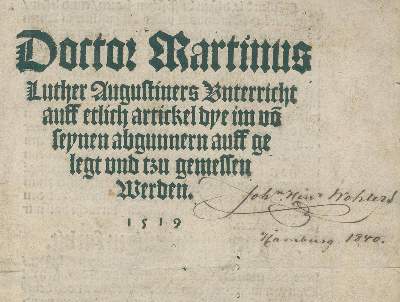 Doctor Martinus
Luther Augustiners Vnterricht
auff etlich artickel dye im võ
seynen abgunnern auff ge
legt vnd tzu gemessen
Werden.
1519
Joh.ⁿ Hinʳ Wohlers
Hamburg 1840.